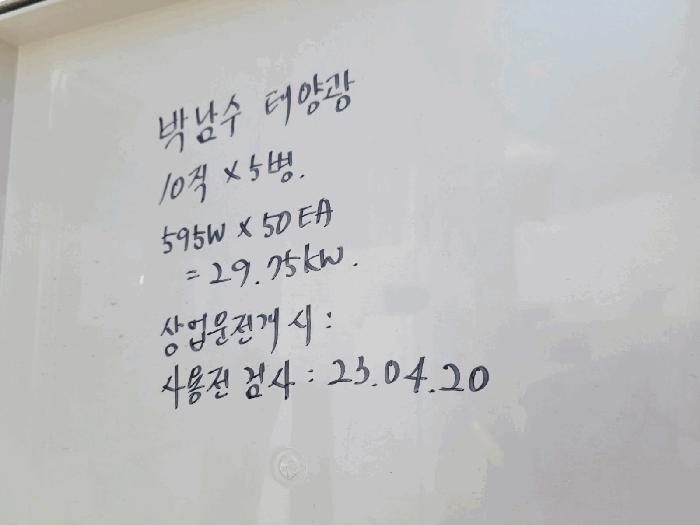 박남수 태양광
10직 x 5병.
595W x 50EA
= 29.75kW.
상업운전개시 :
사용전 검사 : 23.04.20